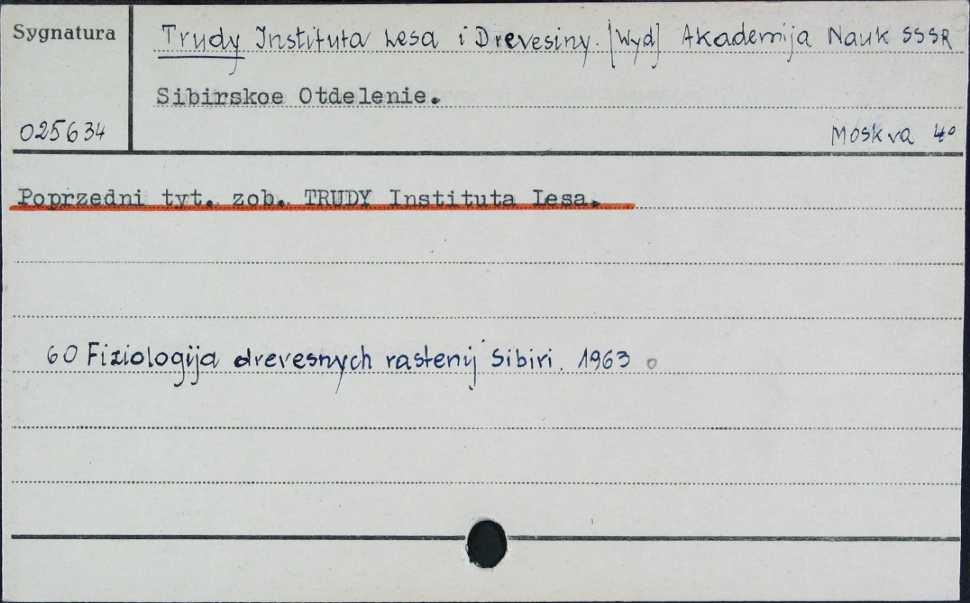 Sygnatura
Trudy Instituta Lesa i Drevesiny. [Wyd] Akademija Nauk SSSR
Sibirskoe Otdelenie.
025634
Moskva 4°
Poprzedni tyt. zob. TRUDY Instituta Lesa.
60 Fiziologija drevesnych rastenij Sibiri. 1963